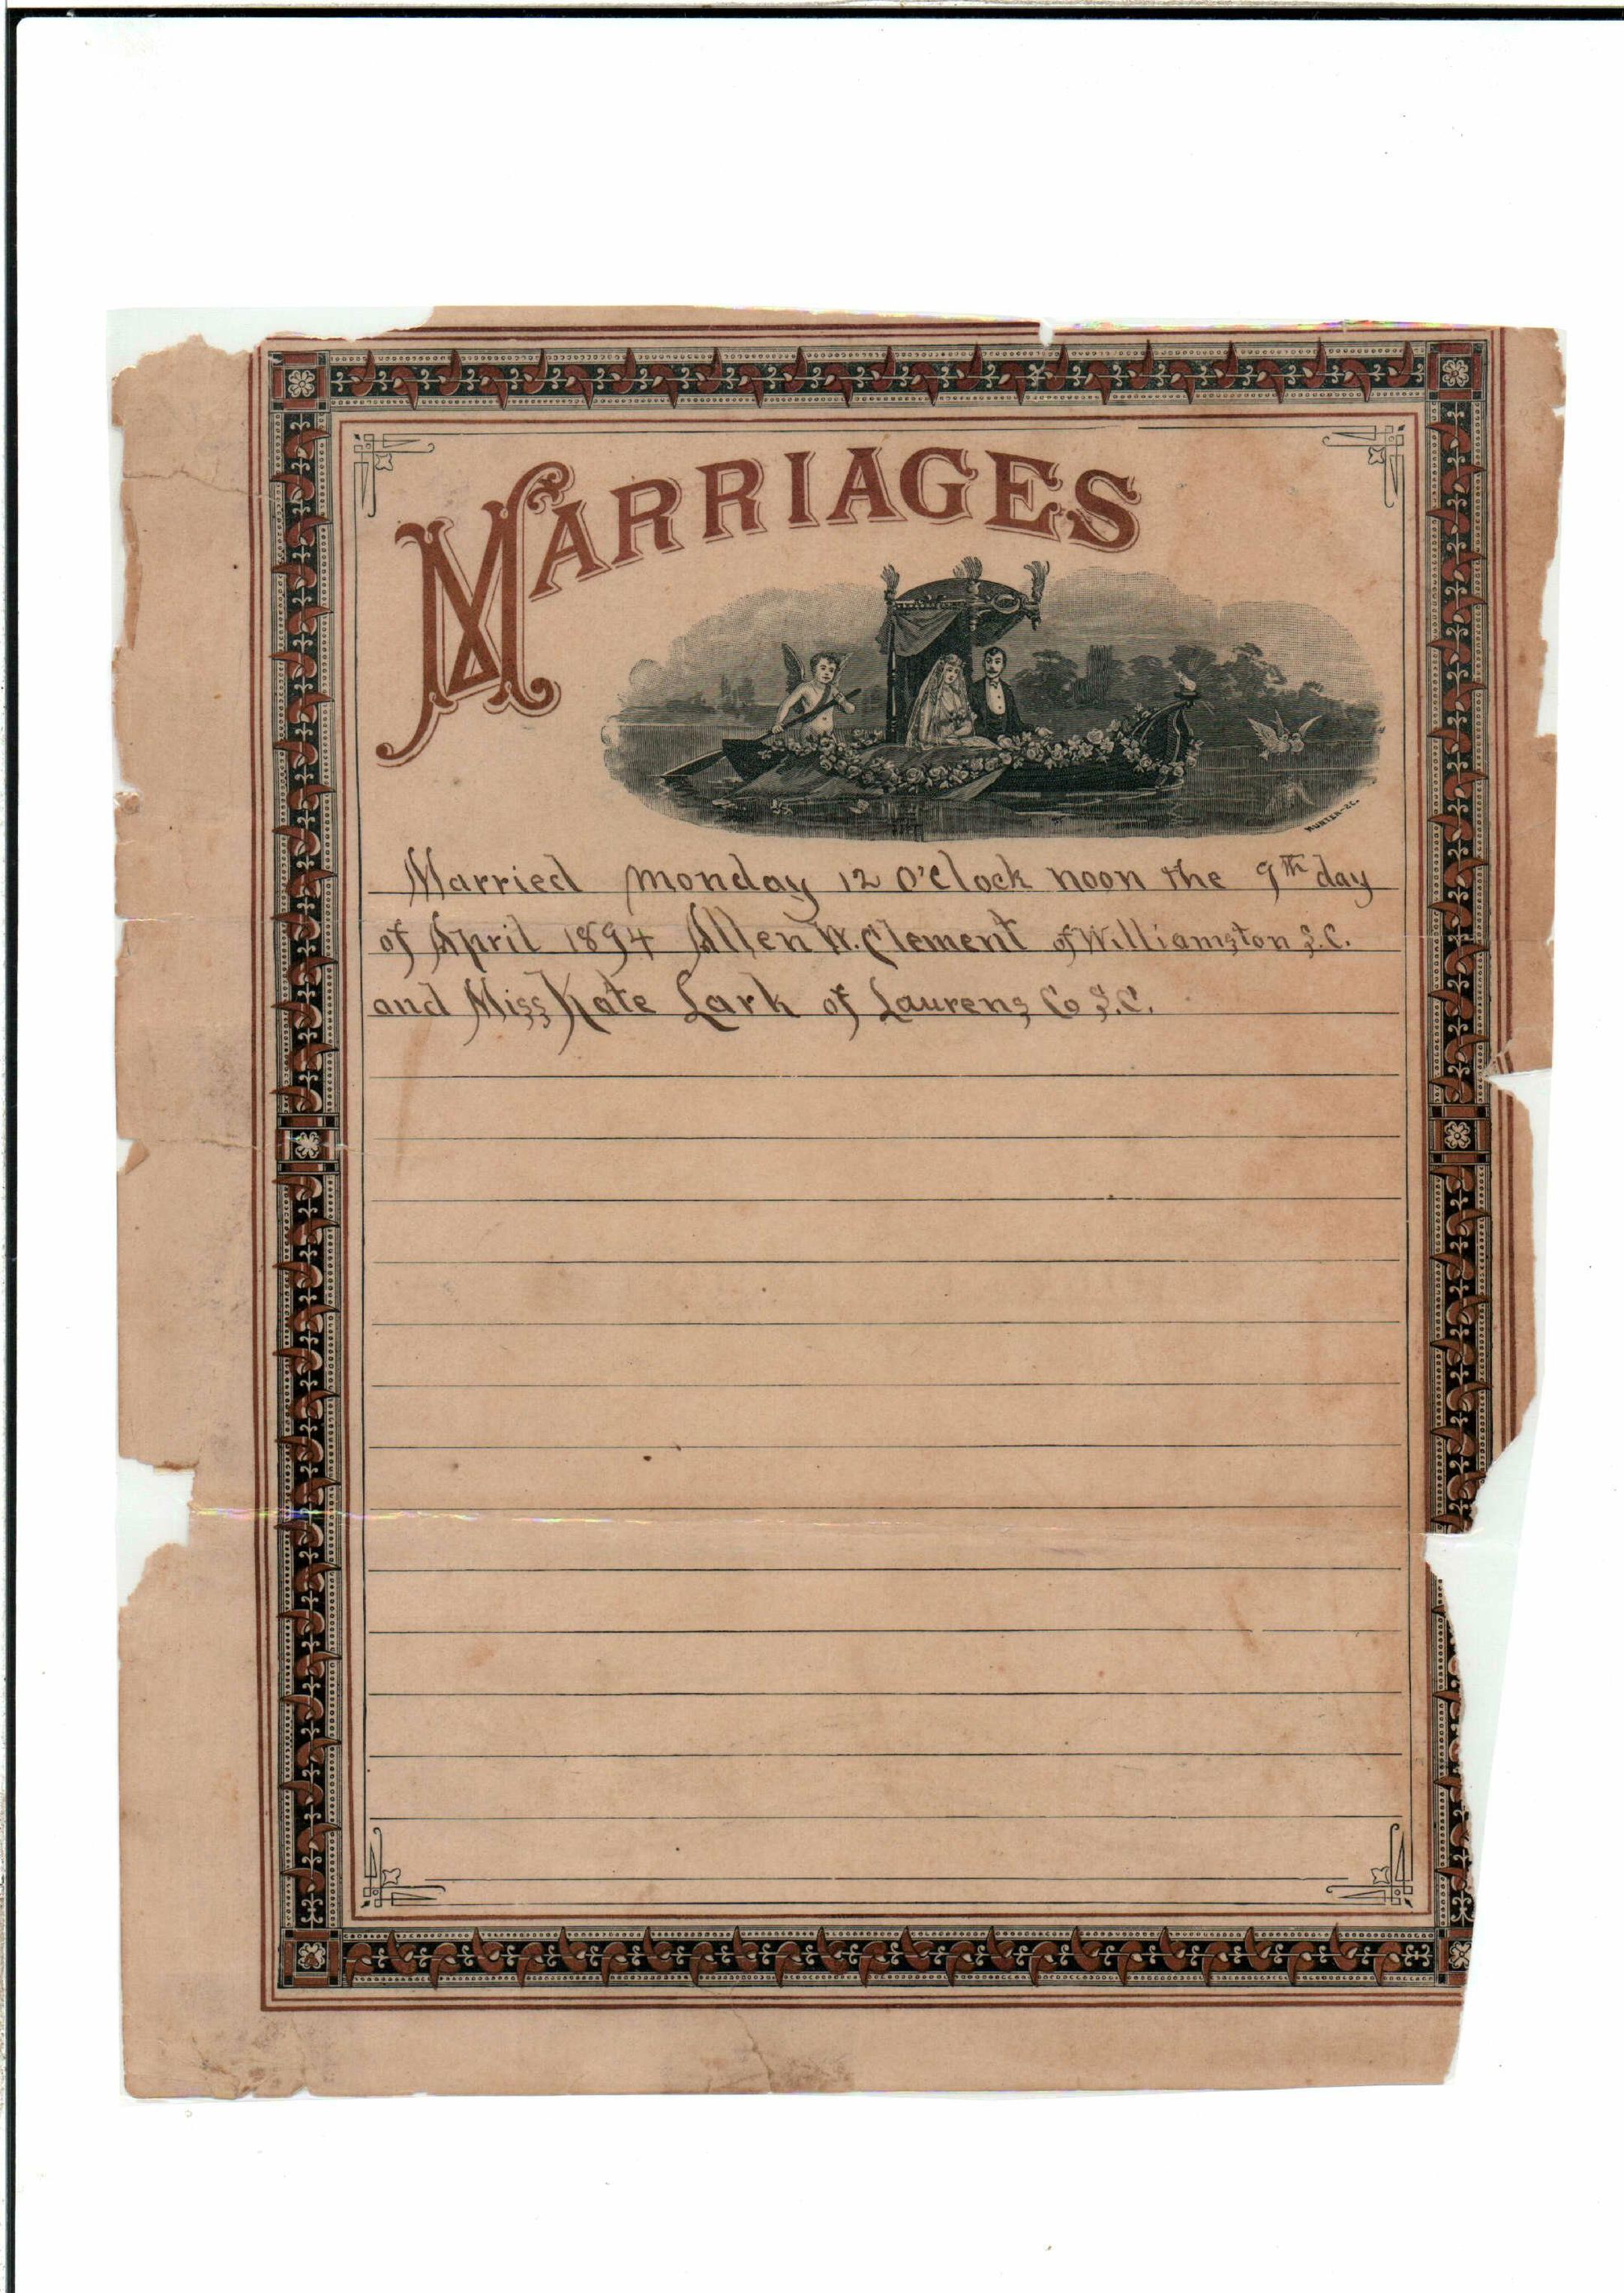 MARRIAGES
HUNTER-SC.
Married Monday 12 O'Clock noon the 9th day
of April 1894 Allen W. Clement of Williamston S.C.
and Miss Kate Lark of Laurens Co S.C.